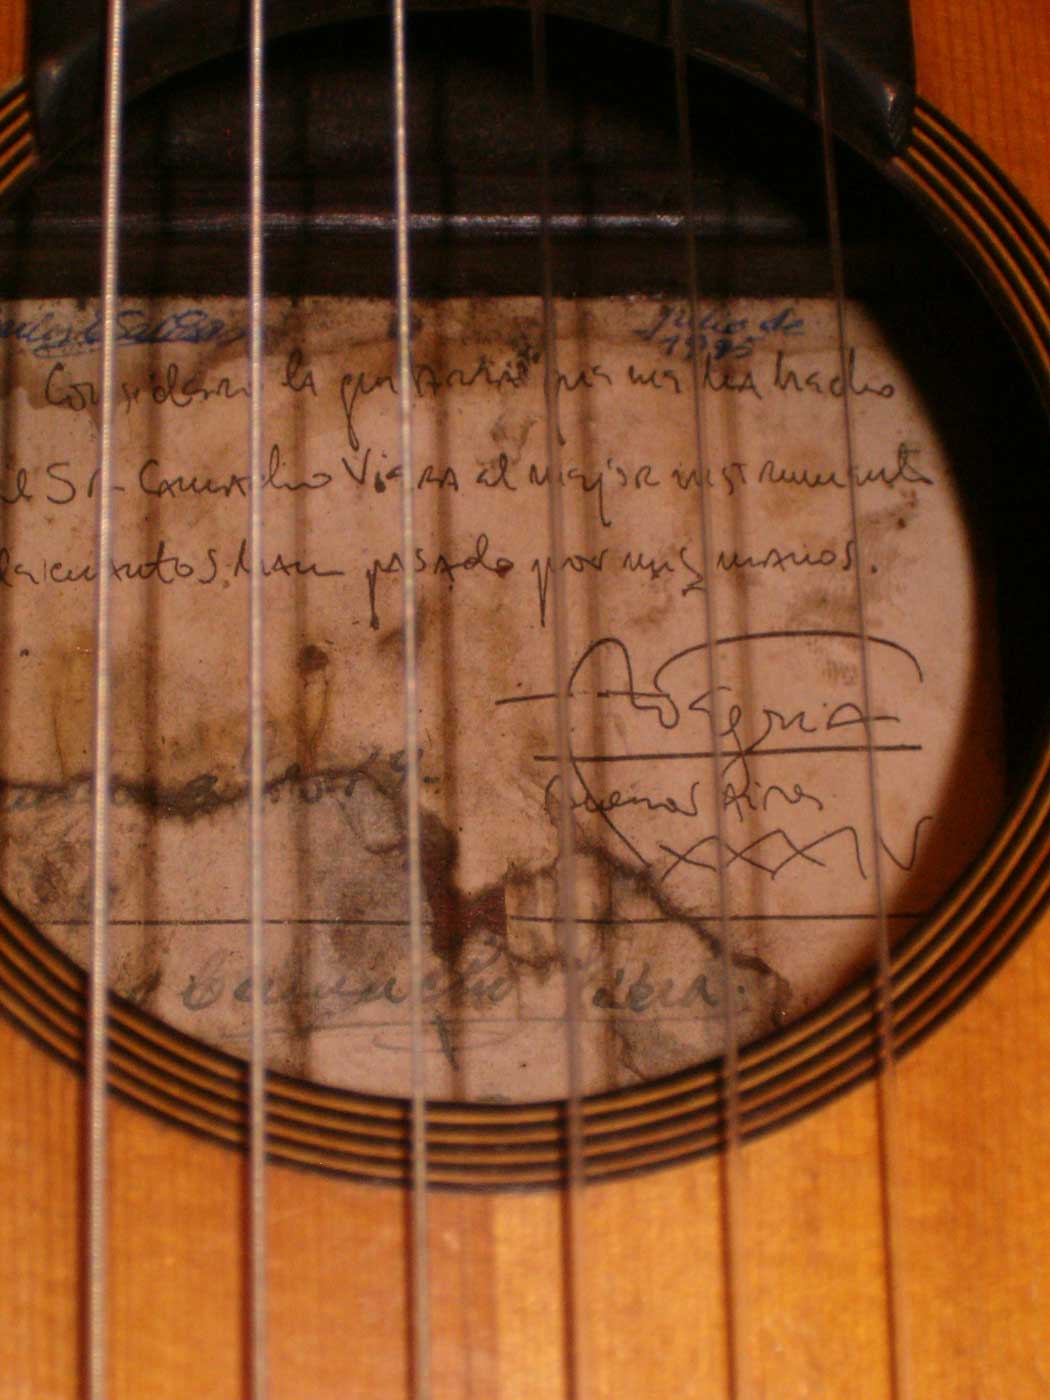 Julio de
1995
Considero la guitarra que me ha hecho
el Sr. Camacho Viera el mejor instrumento
de cuantos han pasado por mis manos.
Buenos Aires
XXXIV
Camacho Viera.